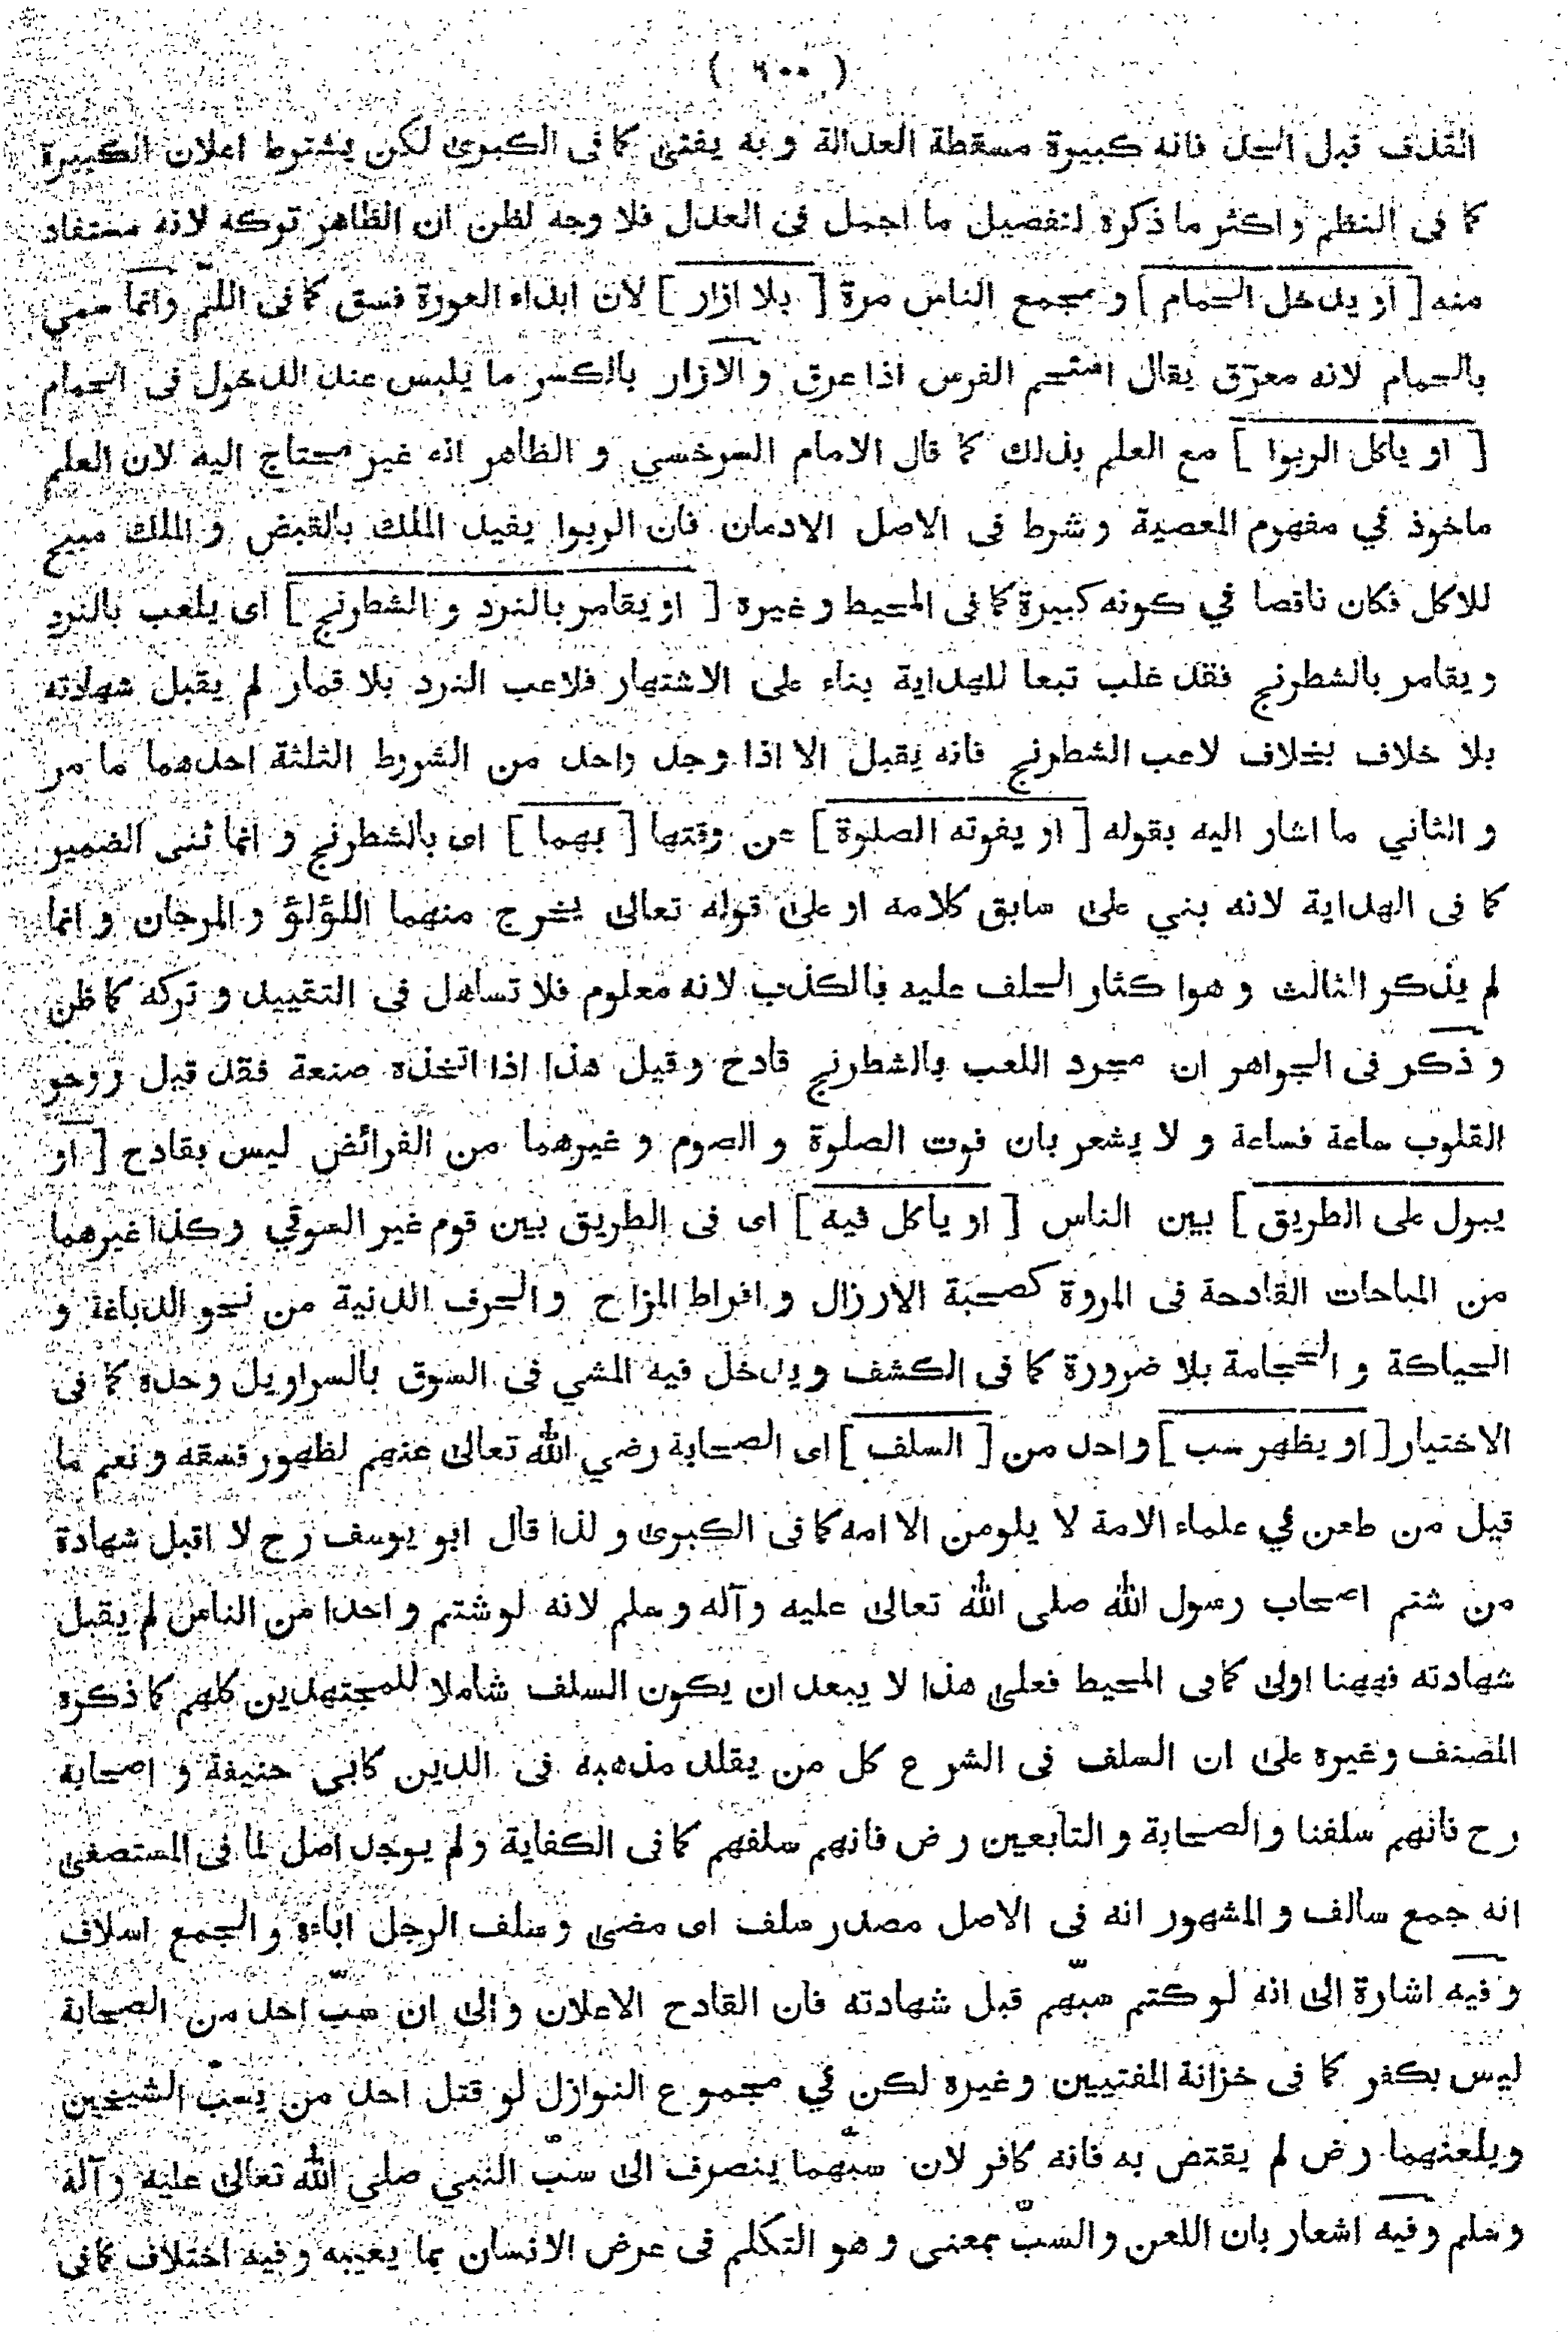 ( ٦٠٠ )
القذف قبل الحد فانه كبيرة مسقطة العدالة و به يفتى كما فى الكبرى لكن يشترط اعلان الكبيرة
كما فى النظم و اكثر ما ذكره لتفصيل ما اجمل فى العدل فلا وجه لظن ان الظاهر تركه لانه مستفاد
منه [ او يدخل الحمام ] و مجمع الناس مرة [ بلا ازار ] لان ابداء العورة فسق كما فى اللم وانما سمي
بالحمام لانه معرّق يقال استحم الفرس اذا عرق و الازار بالكسر ما يلبس عند الدخول فى الحمام
[ او ياكل الربوا ] مع العلم بذلك كما قال الامام السرخسي و الظاهر انه غير محتاج اليه لان العلم
ماخوذ في مفهوم المعصية و شرط فى الاصل الادمان فان الربوا يفيد الملك بالقبض و الملك مبيح
للاكل فكان ناقصا في كونه كبيرة كما فى المحيط و غيره [ او يقامر بالنرد و الشطرنج ] اى يلعب بالنرد
و يقامر بالشطرنج فقد غلب تبعا للهداية بناء على الاشتهار فلاعب النرد بلا قمار لم يقبل شهادته
بلا خلاف بخلاف لاعب الشطرنج فانه يقبل الا اذا وجد واحد من الشروط الثلثة احدهما ما مر
و الثاني ما اشار اليه بقوله [ او يفوته الصلوة ] عن وقتها [ بهما ] اى بالشطرنج و انما ثنى الضمير
كما فى الهداية لانه بني على سابق كلامه او على قوله تعالى يخرج منهما اللؤلؤ و المرجان و انما
لم يذكر الثالث و هو اكثار الحلف عليه بالكذب لانه معلوم فلا تساهل فى التقييد و تركه كما ظن
و ذكر فى الجواهر ان مجرد اللعب بالشطرنج قادح و قيل هذا اذا اتخذه صنعة فقد قيل روحو
القلوب ساعة فساعة و لا يشعر بان فوت الصلوة و الصوم و غيرهما من الفرائض ليس بقادح [ او
يبول على الطريق ] بين الناس [ او ياكل فيه ] اى فى الطريق بين قوم غير السوقي و كذا غيرهما
من المباحات القادحة فى المروة كصحبة الارزال و افراط المزاح و الحرف الدنية من نحو الدباغة و
الحياكة و الحجامة بلا ضرورة كما فى الكشف و يدخل فيه المشي فى السوق بالسراويل وحده كما فى
الاختيار [ او يظهر سب ] واحد من [ السلف ] اى الصحابة رضي الله تعالى عنهم لظهور فسقه و نعم ما
قيل من طعن في علماء الامة لا يلومن الا امه كما فى الكبرى و لذا قال ابو يوسف رح لا اقبل شهادة
من شتم اصحاب رسول الله صلى الله تعالى عليه وآله و سلم لانه لو شتم واحدا من الناس لم يقبل
شهادته فههنا اولى كما فى المحيط فعلى هذا لا يبعد ان يكون السلف شاملا للمجتهدين كلهم كما ذكره
المصنف و غيره على ان السلف فى الشرع كل من يقلد مذهبه فى الدين كابي حنيفة و اصحابه
رح فانهم سلفنا و الصحابة و التابعين رض فانهم سلفهم كما فى الكفاية و لم يوجد اصل لما فى المستصفى
انه جمع سالف و المشهور انه فى الاصل مصدر سلف اى مضى و سلف الرجل اباءه و الجمع اسلاف
و فيه اشارة الى انه لو كتم سبّهم قبل شهادته فان القادح الاعلان و الى ان سبّ احد من الصحابة
ليس بكفر كما فى خزانة المفتيين و غيره لكن في مجموع النوازل لو قتل احد من يسبّ الشيخين
ويلعنهما رض لم يقتص به فانه كافر لان سبّهما ينصرف الى سبّ النبي صلى الله تعالى عليه وآله
و سلم و فيه اشعار بان اللعن و السبّ بمعنى و هو التكلم فى عرض الانسان بما يعيبه و فيه اختلاف كما فى